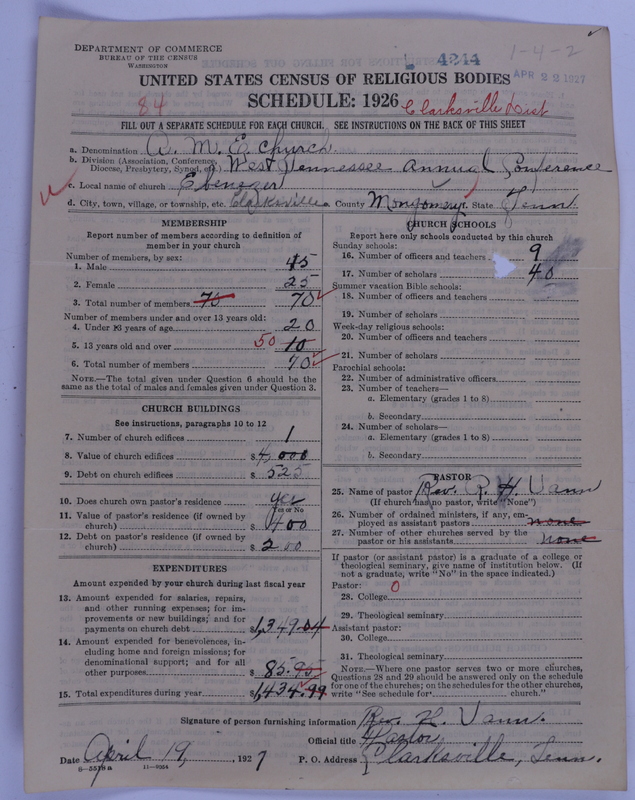 DEPARTMENT OF COMMERCE
BUREAU OF THE CENSUS
WASHINGTON
4244
1-4-2
APR 22 1927
UNITED STATES CENSUS OF RELIGIOUS BODIES
84
SCHEDULE: 1926
Clarksville Dist
FILL OUT A SEPARATE SCHEDULE FOR EACH CHURCH. SEE INSTRUCTIONS ON THE BACK OF THIS SHEET
a. Denomination A. M. E. Church
b. Division (Association, Conference, Diocese, Presbytery, Synod, etc.) West Tennessee Annual Conference
c. Local name of church Ebenezer
d. City, town, village, or township, etc. Clarksville County Montgomery State Tenn.
MEMBERSHIP
Report number of members according to definition of
member in your church
Number of members, by sex:
1. Male 45
2. Female 25
3. Total number of members 70 70
Number of members under and over 13 years old:
4. Under 13 years of age 20
5. 13 years old and over 50 10
6. Total number of members 70
NOTE.—The total given under Question 6 should be the
same as the total of males and females given under Question 3.
CHURCH BUILDINGS
See instructions, paragraphs 10 to 12
7. Number of church edifices 1
8. Value of church edifices $ 4,000
9. Debt on church edifices $ 525
10. Does church own pastor's residence yes
Yes or No
11. Value of pastor's residence (if owned by
church) $ 400
12. Debt on pastor's residence (if owned by
church) $ 200
EXPENDITURES
Amount expended by your church during last fiscal year
13. Amount expended for salaries, repairs,
and other running expenses; for im-
provements or new buildings; and for
payments on church debt $1,349.04
14. Amount expended for benevolences, in-
cluding home and foreign missions; for
denominational support; and for all
other purposes $ 85.95
15. Total expenditures during year $1,434.99
CHURCH SCHOOLS
Report here only schools conducted by this church
Sunday schools:
16. Number of officers and teachers 9
17. Number of scholars 40
Summer vacation Bible schools:
18. Number of officers and teachers
19. Number of scholars
Week-day religious schools:
20. Number of officers and teachers
21. Number of scholars
Parochial schools:
22. Number of administrative officers
23. Number of teachers—
a. Elementary (grades 1 to 8)
b. Secondary
24. Number of scholars—
a. Elementary (grades 1 to 8)
b. Secondary
PASTOR
25. Name of pastor Rev. R. H. Vann
(If church has no pastor, write "None")
26. Number of ordained ministers, if any, em-
ployed as assistant pastors none
27. Number of other churches served by the
pastor or his assistants none
If pastor (or assistant pastor) is a graduate of a college or
theological seminary, give name of institution below. (If
not a graduate, write "No" in the space indicated.)
Pastor: 0
28. College
29. Theological seminary
Assistant pastor:
30. College
31. Theological seminary
NOTE.—Where one pastor serves two or more churches,
Questions 28 and 29 should be answered only on the schedule
for one of the churches; on the schedules for the other churches,
write "See schedule for church."
Signature of person furnishing information Rev. H. Vann.
Official title Pastor
Date April 19, 1927 P. O. Address Clarksville, Tenn.
8-5518a 11-9354